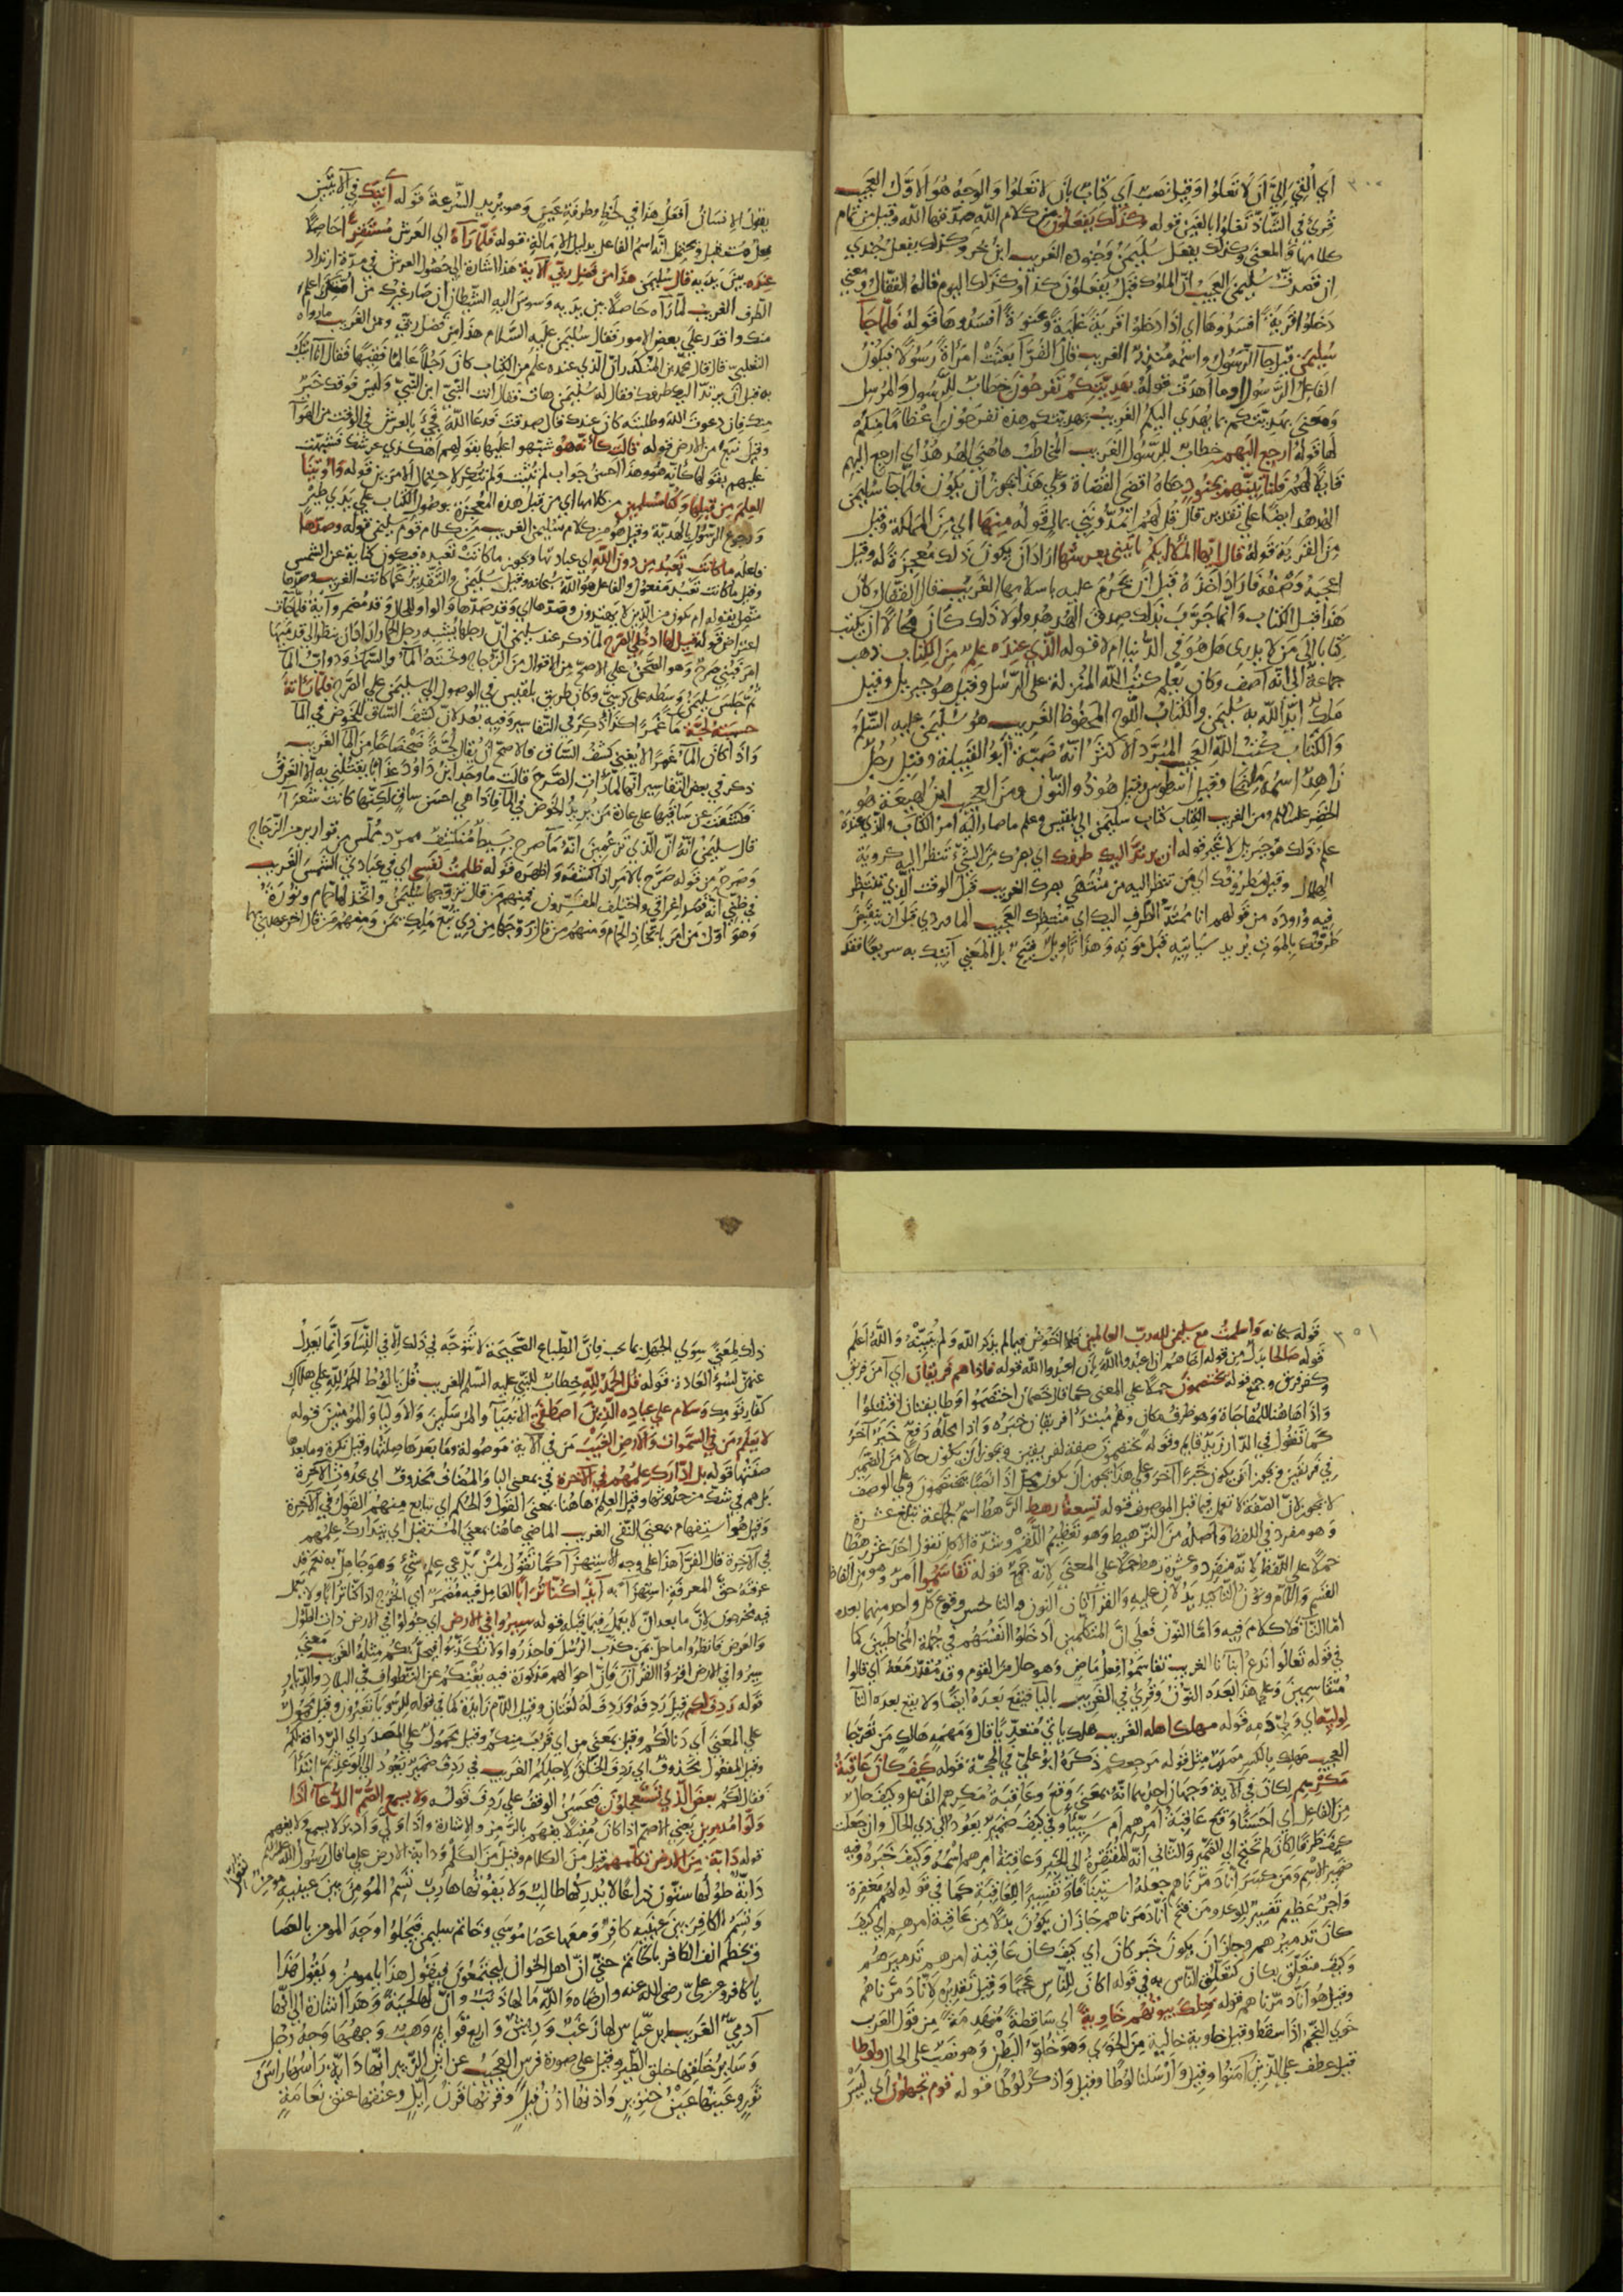 ٣٠٠
أي ألقي إلي أن لا تعلوا وقيل نصب أي كتاب بأن لا تعلوا والوجه هو الأول العجيب
قرئ في الشاذ تغلوا بالغين قوله وكذلك يفعلون من كلام الله صدقها الله وقيل من تمام
كلامها والمعنى وكذلك يفعل سليمن وجنوده الغريب ابن بحر وكذلك يفعل جندي
إن قصدت سليمن العجيب أن الملوك قبل يفعلون كذا وكذلك اليوم قاله القفال ومعنى
دخلوا قرية أفسدوها أي إذا دخلوا قرية غلبة وعنوة أفسدوها قوله فلما جا
سليمن قيل جا الرسول واسمه منذر الغريب قال الفرآ بعثت امرأة رسولا فيكون
الفاعل الرسول أو ما أهدت قوله بهديتكم تفرحون خطاب للرسول والمرسل
ومعنى بهديتكم بما يهدي إليكم الغريب بهديتكم هذه تفرحون إعظاما منكم
لها قوله ارجع إليهم خطاب للرسول الغريب المخاطب هاهنا الهدهد أي ارجع إليهم
قايلا لهم فلنأتينهم بجنود حكاه أقضى القضاة وعلى هذا يجوز أن يكون فلما جا سليمن
الهدهد أيضا على تقدير قال قل لهم أتمدونني بمال قوله منها أي من المملكة وقيل
من القرية قوله قال يا أيها الملأ أيكم يأتيني بعرشها أراد أن يكون ذلك معجزة له وقيل
أعجبه وصفه فأراد أخذه قبل أن يحرم عليه بإسلامها الغريب قال القفال وكان
هذا قبل الكتاب وإنما جرب بذلك صدق الهدهد ولولا ذلك كان محالا أن يكتب
كتابا إلى من لا يدري هل هو في الدنيا أم لا قوله الذي عنده علم من الكتاب ذهب
جماعة إلى أنه آصف وكان يعلم كتب الله المنزلة على الرسل وقيل هو جبريل وقيل
ملك أيد الله به سليمن والكتاب اللوح المحفوظ الغريب هو سليمن عليه السلم
والكتاب كتب الله العجيب المبرد الأكثر أنه ضبة أبو القبيلة وقيل رجل
زاهد اسمه مليخا وقيل اسطوس وقيل هوذ والنون ومن العجيب ابن لهيعة هو
الخضر عليه السلم ومن الغريب الكتاب كتاب سليمن إلى بلقيس وعلم ما صار إليه أمر الكتاب والذي عنده
علم ذلك هو جبريل لا غير قوله أن يرتد إليك طرفك أي بصرك من الشيء تنظر إليه كروية
الهلال وقيل طرفك أي من تنظر إليه من منتهى بصرك الغريب قبل الوقت الذي تنتظر
فيه وروده من قولهم أنا ممتد الطرف إليك أي منتظرك العجيب الماوردي قبل أن ينقبض
طرفك بالموت يريد سيأتيه قبل موته وهذا تأويل قبيح بل المعنى آتيك به سريعا فقد
يقول الإنسان أفعل هذا في لحظة وطرفة عين وهو يريد السرعة قوله آتيك في الآيتين
فعل مستقبل ويحتمل أنه اسم الفاعل بدليل الإمالة قوله فلما رآه أي العرش مستقرا حاصلا
عنده بين يديه قال سليمن هذا من فضل ربي الآية هذا إشارة إلى حصول العرش في مدة ارتداد
الطرف الغريب لما رآه حاصلا بين يديه وسوس إليه الشيطان أن صار غيرك من أمتك أعلم
منك وأقدر على بعض الأمور فقال سليمن عليه السلام هذا من فضل ربي ومن الغريب ما رواه
الثعلبي قال قال محمد بن المنكدر إن الذي عنده علم من الكتاب كان رجلا عالما فقيها فقال أنا آتيك
به قبل أن يرتد إليك طرفك فقال له سليمن هات فقال أنت النبي ابن النبي وليس فوقك خير
منك فإن دعوت الله وطلبته كان عندك قال صدقت فدعا الله فجيء بالعرش في الوقت من الهوآ
وقيل نبع من الأرض قوله قالت كأنه هو شبهوا عليها بقولهم أهكذا عرشك فشبهت
عليهم بقولها كأنه هو وهذا أحسن جواب لم تثبت ولم تنكر لاحتمال الأمرين قوله وأوتينا
العلم من قبلها وكنا مسلمين من كلامها أي من قبل هذه المعجزة بوصول الكتاب على يدي طير
ورجوع الرسول بالهدية وقيل هو من كلام سليمن الغريب من كلام قوم سليمن قوله وصدها
فاعله ما كانت تعبد من دون الله أي عبادتها ويجوز ما كانت تعبده فيكون كناية عن الشمس
وقيل ما كانت تعبد مفعول والفاعل هو الله سبحانه وقيل سليمن والتقدير عما كانت الغريب وصدها
متصل بقوله أم تكون من الذين لا يهتدون وصدها أي وقد صدها والواو للحال وقد مضمر وآية فلما جآت
اعتراض قوله قيل لها ادخلي الصرح لما ذكر عند سليمن أن رجلها يشبه رجل الحمار أراد أن ينظر إلى قدميها
أمر فبني صرح وهو الصحن على الأصح من الأقوال من الزجاج وتحته المآ والسمك ودواب المآ
ثم جلس سليمن وسطه على كرسي وكان طريق بلقيس في الوصول إلى سليمن على الصرح فلما رأته
حسبته لجة مآ غمرا كذا ذكر في التفاسير وفيه بعد لأن كشف الساق للخوض في المآ
وإذا كان المآ غمرا لا يغني كشف الساق فالأصح أن يقال لجة ضحضاحا من المآ الغريب
ذكر في بعض التفاسير أنها لما رأت الصرح قالت ما وجد ابن داود عذابا يقتلني به إلا الغرق
فكشفت عن ساقيها على عادة من يريد الخوض في المآ فإذا هي أحسن ساق لكنها كانت شعرآ
قال سليمن إنه إن الذي تزعمين أنه مآ صرح بسيط منكشف ممرد مملس من قوارير من الزجاج
وصرح من قوله صرح بالأمر إذا كشفه وأظهره قوله ظلمت نفسي أي في عبادتي الشمس الغريب
في ظني أنه قصد إغراقي واختلف المفسرون فمنهم من قال تزوجها سليمن واتخذ لها حمام ونورة
وهو أول من أمر باتخاذ الحمام ومنهم من قال زوجها من ذي تبع ملك يمن ومنهم من قال آخر عهدي بها
٣٠١
قوله سبحانه وأسلمت مع سليمن لله رب العالمين فلما الخوض فيما لم يذكر الله ولم يبينه والله أعلم
قوله صالحا بدل من قوله أخاهم أن اعبدوا الله بأن اعبدوا الله قوله فإذا هم فريقان أي آمن فريق
وكفر فريق وجمع قوله يختصمون حملا على المعنى كما قال خصمان اختصموا وطايفتان اقتتلوا
وإذا هاهنا للمفاجاة وهو ظرف مكان وهم مبتدأ فريقان خبره وإذا محله رفع خبر آخر
كما تقول في الدار زيد قايم وقوله يختصمون صفة لفريقين ويجوز أن يكون حالا من الضمير
في فريقين ويجوز أن يكون خبرا آخر وعلى هذا يجوز أن يكون محل إذا نصبا بيختصمون وعلى الوصف
لا يجوز لأن الصفة لا تعمل فيما قبل الموصوف قوله تسعة رهط الرهط اسم لجماعة تبلغ عشرة
وهو مفرد في اللفظ وأصله من الترهيط وهو تعظيم اللقم وشدة الأكل تقول أحد عشر رهطا
حملا على اللفظ لأنه منفرد وعشرة رهط حملا على المعنى لأنه جمع قوله تقاسموا أمر وهو من ألفاظ
القسم واللام ونون التأكيد يدلان عليه والقراآتان النون والتا لحسن وقوع كل واحد منهما بعده
أما التآ فلا كلام فيه وأما النون فعلى أن المتكلمين أدخلوا أنفسهم في جملة المخاطبين كما
في قوله تعالوا ندع أبنآنا الغريب تقاسموا فعل ماض وهو حال من القوم وقد مقدر معه أي قالوا
متقاسمين وعلى هذا بعده النون وقرئ في الغريب باليا فيقع بعده أيضا ولا يقع بعده التآ
لوليه أي ولي دمه قوله مهلك أهله الغريب هلك يأتي متعديا قال ومهمه هالك من تعرجا
العجيب مهلك بالكسر مصدر مثل قوله مرجعكم ذكره أبو علي في الحجة قوله كيف كان عاقبة
مكرهم لكان في الآية وجهان أحدهما أنه بمعنى وقع وعاقبة مكرهم الفاعل وكيف حال
من الفاعل أي أحسنا وقع عاقبة أمرهم أم سيئا وفي كيف ضمير يعود إلى ذي الحال وإن جعلت
كيف ظرفا لكان لم تحتج إلى الضمير والثاني أنه المفتقرة إلى الخبر وعاقبة أمرهم اسمه وكيف خبره وفيه
ضمير الاسم ومن كسر إنا دمرناهم جعله استينافا وتفسيرا للعاقبة كما في قوله لهم مغفرة
وأجر عظيم تفسير للوعد ومن فتح أنا دمرناهم جاز أن يكون بدلا من عاقبة أمرهم أي كيف
كان تدميرهم وجاز أن يكون خبر كان أي كيف كان عاقبة أمرهم تدميرهم
وكيف متعلق بكان كتعلق للناس به في قوله أكان للناس عجبا وقيل تقديره لأنا دمرناهم
وقيل هو أنا دمرناهم قوله فتلك بيوتهم خاوية أي ساقطة متهدمة من قول العرب
خوى النجم إذا سقط وقيل خاوية خالية من الخوى وهو خلو البطن وهو نصب على الحال ولوطا
قيل عطف على الذين آمنوا وقيل وأرسلنا لوطا وقيل واذكر لوطا قوله قوم تجهلون أي ليس
ذلك لمعنى سوى الجهل بما يجب فإن الطباع الصحيحة لا تتوجه في ذلك إلا في النسآ وإنما يعدل
عنهن لسوء العادة قوله قل الحمد لله خطاب للنبي عليه السلم الغريب قل يا لوط الحمد لله على هلاك
كفار قومك وسلام على عباده الذين اصطفى الأنبيآ والمرسلين والأوليآ والمؤمنين قوله
لا يعلم من في السموات والأرض الغيب من في الآية موصولة وما بعدها صلتها وقيل نكرة وما بعدها
صفتها قوله بل ادارك علمهم في الآخرة في بمعنى البا والمضاف محذوف أي بحدوث الآخرة
بل هم في شك من حدوثها وقيل العلم هاهنا بمعنى القول والحكم أي تتابع منهم القول في الآخرة
وقيل هو استفهام بمعنى النفي الغريب الماضي هاهنا بمعنى المستقبل أي يتدارك علمهم
في الآخرة قال الفرآ هذا على وجه الاستهزآ كما تقول لمن يدعي علم شيء وهو جاهل به نعم قد
عرفته حق المعرفة استهزآ به أئذا كنا ترابا العامل فيه مضمر أي انخرج إذا كنا ترابا ولا يعمل
فيه مخرجون لأن ما بعد إن لا يعمل فيما قبله قوله سيروا في الأرض أي جولوا في الأرض ذات الطول
والعرض فانظروا ما حل بمن كذب الرسل فاحذروا ولا تكذبوا فيحل بكم مثله الغريب معنى
سيروا في الأرض اقرؤا القرآن فإن أحوالهم مذكورة فيه يغنيكم عن التطواف في البلاد والديار
قوله ردف لكم قيل ردفه وردف له لغتان وقيل اللام زايدة كما في قوله للرؤيا تعبرون وقيل محمول
على المعنى أي دنا لكم وقيل بمعنى من أي قرب منكم وقيل محمول على المصدر أي الردافة لكم
وقيل المفعول محذوف أي ردف الخلق لأجلكم الغريب في ردف ضمير يعود إلى الوعد ثم ابتدأ
فقال لكم بعض الذي تستعجلون فحسن الوقف على ردف قوله ولا يسمع الصم الدعآ إذا
ولوا مدبرين يعني الأصم إذا كان مقبلا يفهم بالرمز والإشارة وإذا ولى وأدبر لا يسمع ولا يفهم
قوله دابة من الأرض تكلمهم قيل من الكلام وقيل من الكلم ودابة الأرض على ما قال رسول الله عليه السلم
دابة طولها ستون ذراعا لا يدركها طالب ولا يفوتها هارب تسم المؤمن بين عينيه مؤمن
وتسم الكافر بين عينيه كافر ومعها عصا موسى وخاتم سليمن فيجلوا وجه المومن بالعصا
وتخطم أنف الكافر بالخاتم حتى إن أهل الخوان ليجتمعون فيقول هذا يا مومن ويقول هذا
يا كافر وعن علي رضي الله عنه وأرضاه والله ما لها ذنب وإن لها لحية وهذا إشارة إلى أنها
آدمي الغريب ابن عباس لها زغب وريش وأربع قوايم وهب وجهها وجه رجل
وساير خلقها خلق الطير وقيل على صورة فرس العجيب عن ابن الزبير أنها دابة رأسها رأس
ثور وعينها عين خنزير وأذنها أذن فيل وقرنها قرن إيل وعنقها عنق نعامة